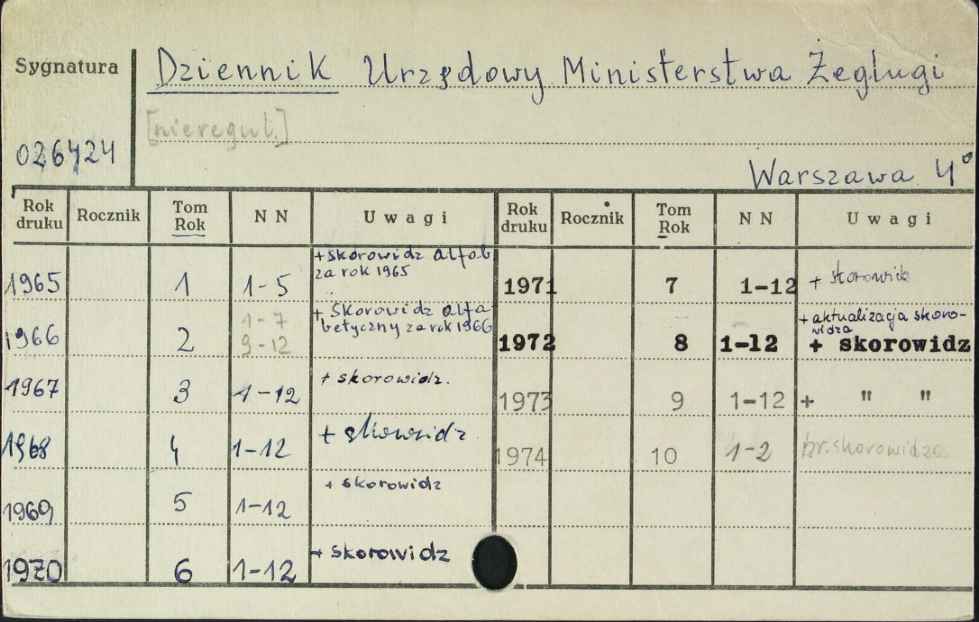 Sygnatura
Dziennik Urzędowy Ministerstwa Żeglugi
[nieregul.]
026424
Warszawa 4°
Rok druku Rocznik Tom Rok NN Uwagi Rok druku Rocznik Tom Rok NN Uwagi
1965 1 1-5 + skorowidz alfab. za rok 1965
1966 2 1-7 9-12 + skorowidz alfabetyczny za rok 1966
1967 3 1-12 + skorowidz.
1968 4 1-12 + skorowidz
1969 5 1-12 + skorowidz
1970 6 1-12 + skorowidz
1971 7 1-12 + skorowidz
1972 8 1-12 + aktualizacja skorowidza + skorowidz
1973 9 1-12 + " "
1974 10 1-2 br. skorowidza